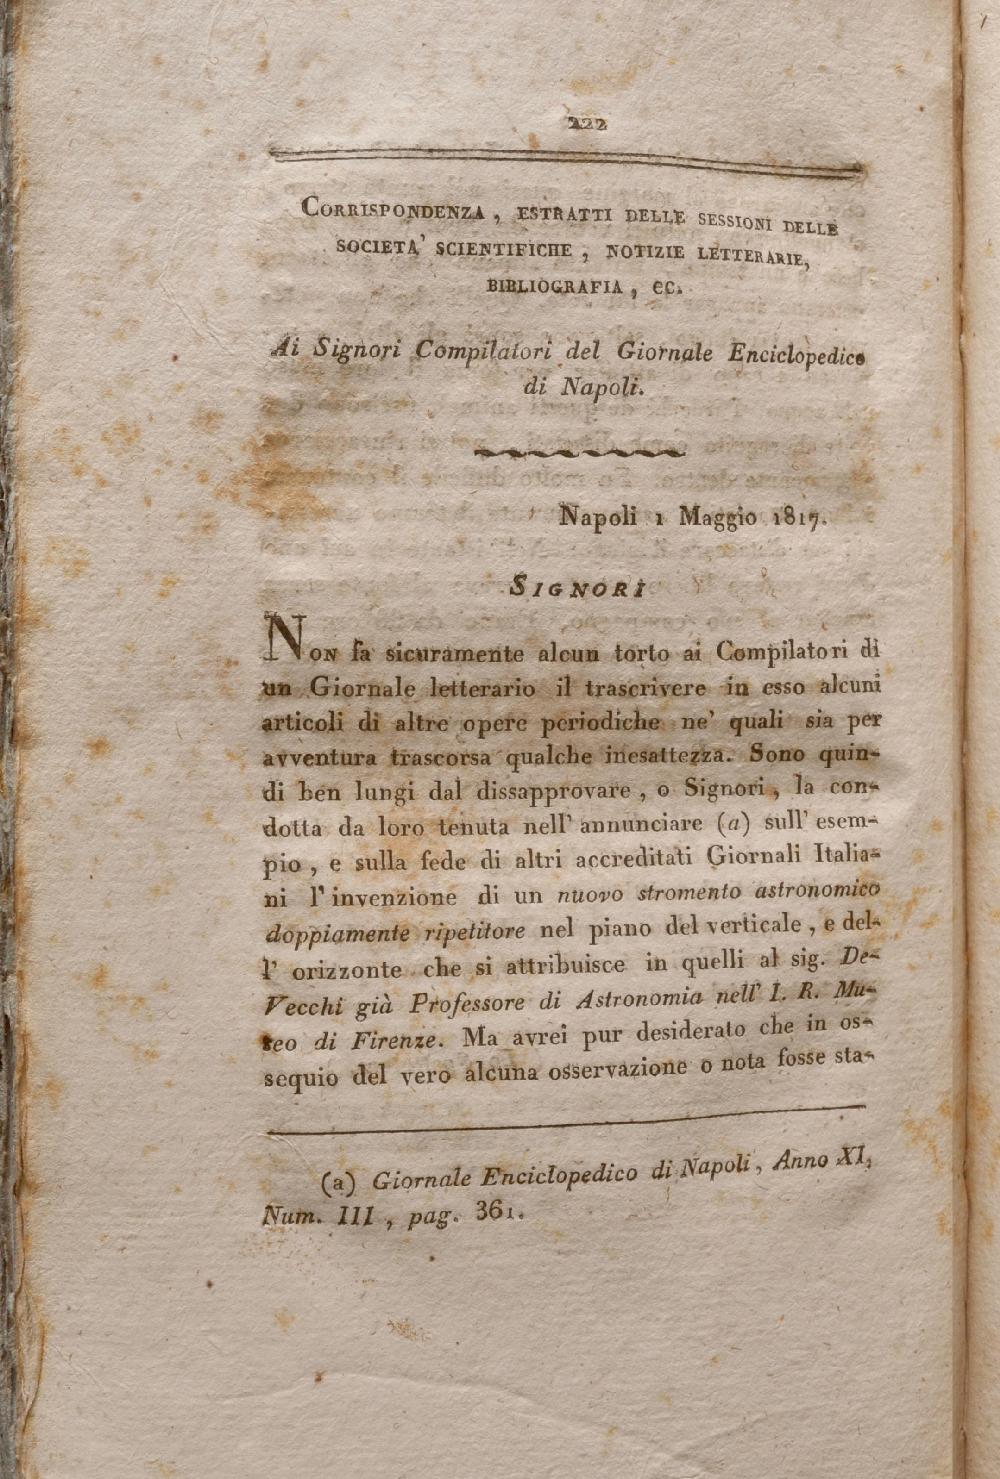 222
CORRISPONDENZA , ESTRATTI DELLE SESSIONI DELLE
SOCIETA' SCIENTIFICHE , NOTIZIE LETTERARIE,
BIBLIOGRAFIA , ec.
Ai Signori Compilatori del Giornale Enciclopedico
di Napoli.
Napoli 1 Maggio 1817.
SIGNORI
NON fa sicuramente alcun torto ai Compilatori di
un Giornale letterario il trascrivere in esso alcuni
articoli di altre opere periodiche ne' quali sia per
avventura trascorsa qualche inesattezza. Sono quin-
di ben lungi dal dissapprovare , o Signori , la con-
dotta da loro tenuta nell' annunciare (a) sull' esem-
pio , e sulla fede di altri accreditati Giornali Italia-
ni l' invenzione di un nuovo stromento astronomico
doppiamente ripetitore nel piano del verticale , e del-
l' orizzonte che si attribuisce in quelli al sig. De-
Vecchi già Professore di Astronomia nell' I. R. Mu-
seo di Firenze. Ma avrei pur desiderato che in os-
sequio del vero alcuna osservazione o nota fosse sta-
(a) Giornale Enciclopedico di Napoli, Anno XI,
Num. III , pag. 361.